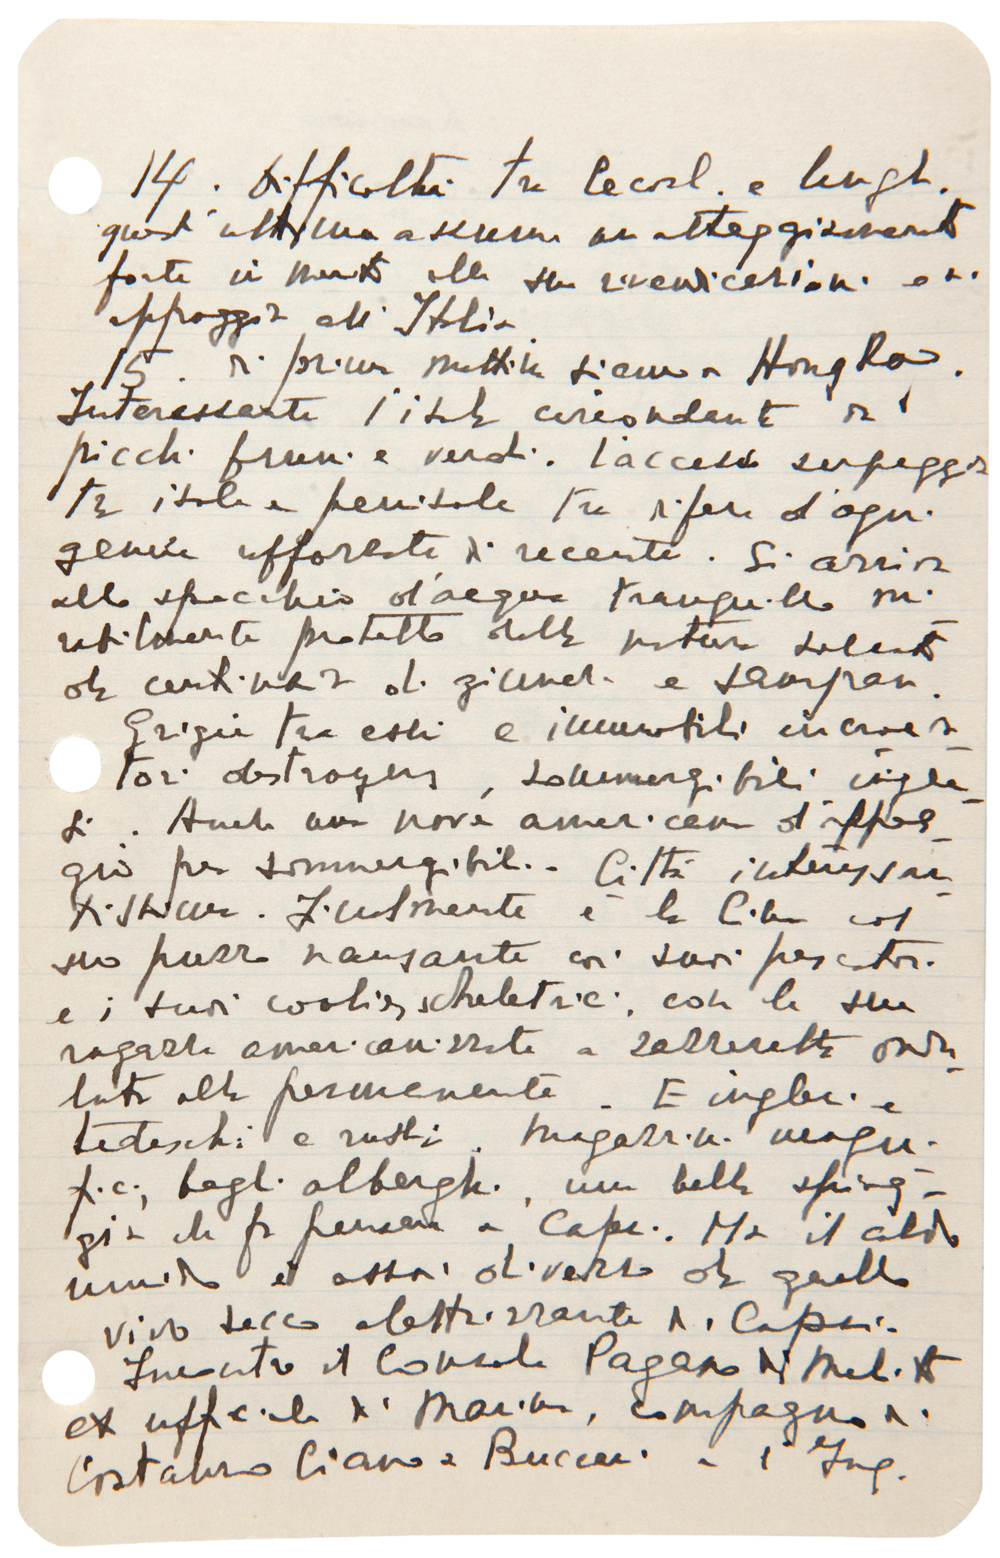 14. Difficoltà tra Cecosl. e Ungh.
quest'ultima assume un atteggiamento
forte in merito alle sue rivendicazioni e si
appoggia all'Italia
15. di prima mattina siamo a HongKao.
Interessante l'isola circondante di
picchi bruni e verdi. L'accesso serpeggia
tra isole e penisole tra ripe d'ogni
genere afforeste di recente. Si arriva
allo specchio d'acqua tranquillo mi-
rabilmente protetto dalla natura solcato
da centinaia di giunche e sampan.
Grigie tra essi e immobili incrocia-
tori destroyers, sommergibili ingle-
si. Anche una nave americana d'appog-
gio per sommergibili. Città interessan-
tissima. Finalmente è la Cina col
suo puzzo nauseante coi suoi pescatori
e i suoi coolies scheletrici, con le sue
ragazze americanizzate a zazzeretta ondu-
lata alla permanente. E inglesi e
tedeschi e russi. Magazzini magni-
fici, begli alberghi, una bella spiag-
gia che fa pensare a Capri. Ma il caldo
umido è assai diverso da quello
vivo secco elettrizzante di Capri.
Incontro il Console Pagano di Melito
ex ufficiale di Marina, compagno di
Costanzo Ciano e Bucceri e l'Ing.